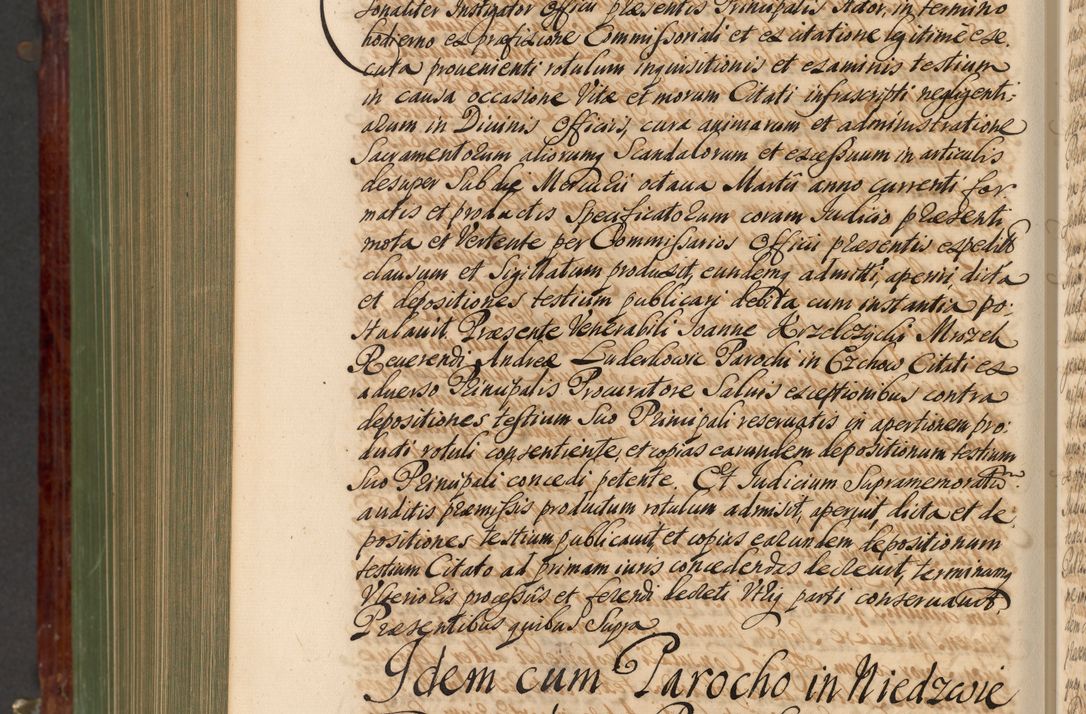 sonaliter Instigator Officii præsentis Principalis Actor, in termino
hodierno ex præfixione Commissoriali et ex citatione legitime exe-
cuta provenienti rotulum inquisitionis et examinis testium
in causa occasione Vitæ et morum Citati infrascripti negligenti-
arum in Divinis Officiis, cura animarum et administratione
Sacramentorum aliorumq Scandalorum et excessuum in articulis
desuper Sub die Mercurii octava Martii anno currenti for
matis et productis Specificatorum coram Iudicio præsenti
mota et Vertente per Commissarios Officii præsentis expedit
clausum et Sigillatum produxit, eundemq admitti, aperiri, dicta
et depositiones testium publicari debita cum instantia po-
stulavit. Præsente Venerabili Ioanne Krzelczycki Mrozek
Reverendi Andreæ Luderkowic Parochi in Czchow Citati ex
adverso Principalis Procuratore Salvis exceptionibus contra
depositiones testium Suo Principali reservatis in apertionem pro-
ducti rotuli consentiente, et copias earundem depositionum testium
Suo Principali concedi petente. Et Iudicium Supramemoratū
auditis præmissis productum rotulum admisit, aperuit, dicta et de-
positiones testium publicavit, et copias earundem depositionum
testium Citato ad primam iuris concedendas decrevit, terminumq
Ulterioris processus et ferendi decreti Utriq parti conservavit
Præsentibus quibus Supra
Idem cum Parocho in Niedzwie